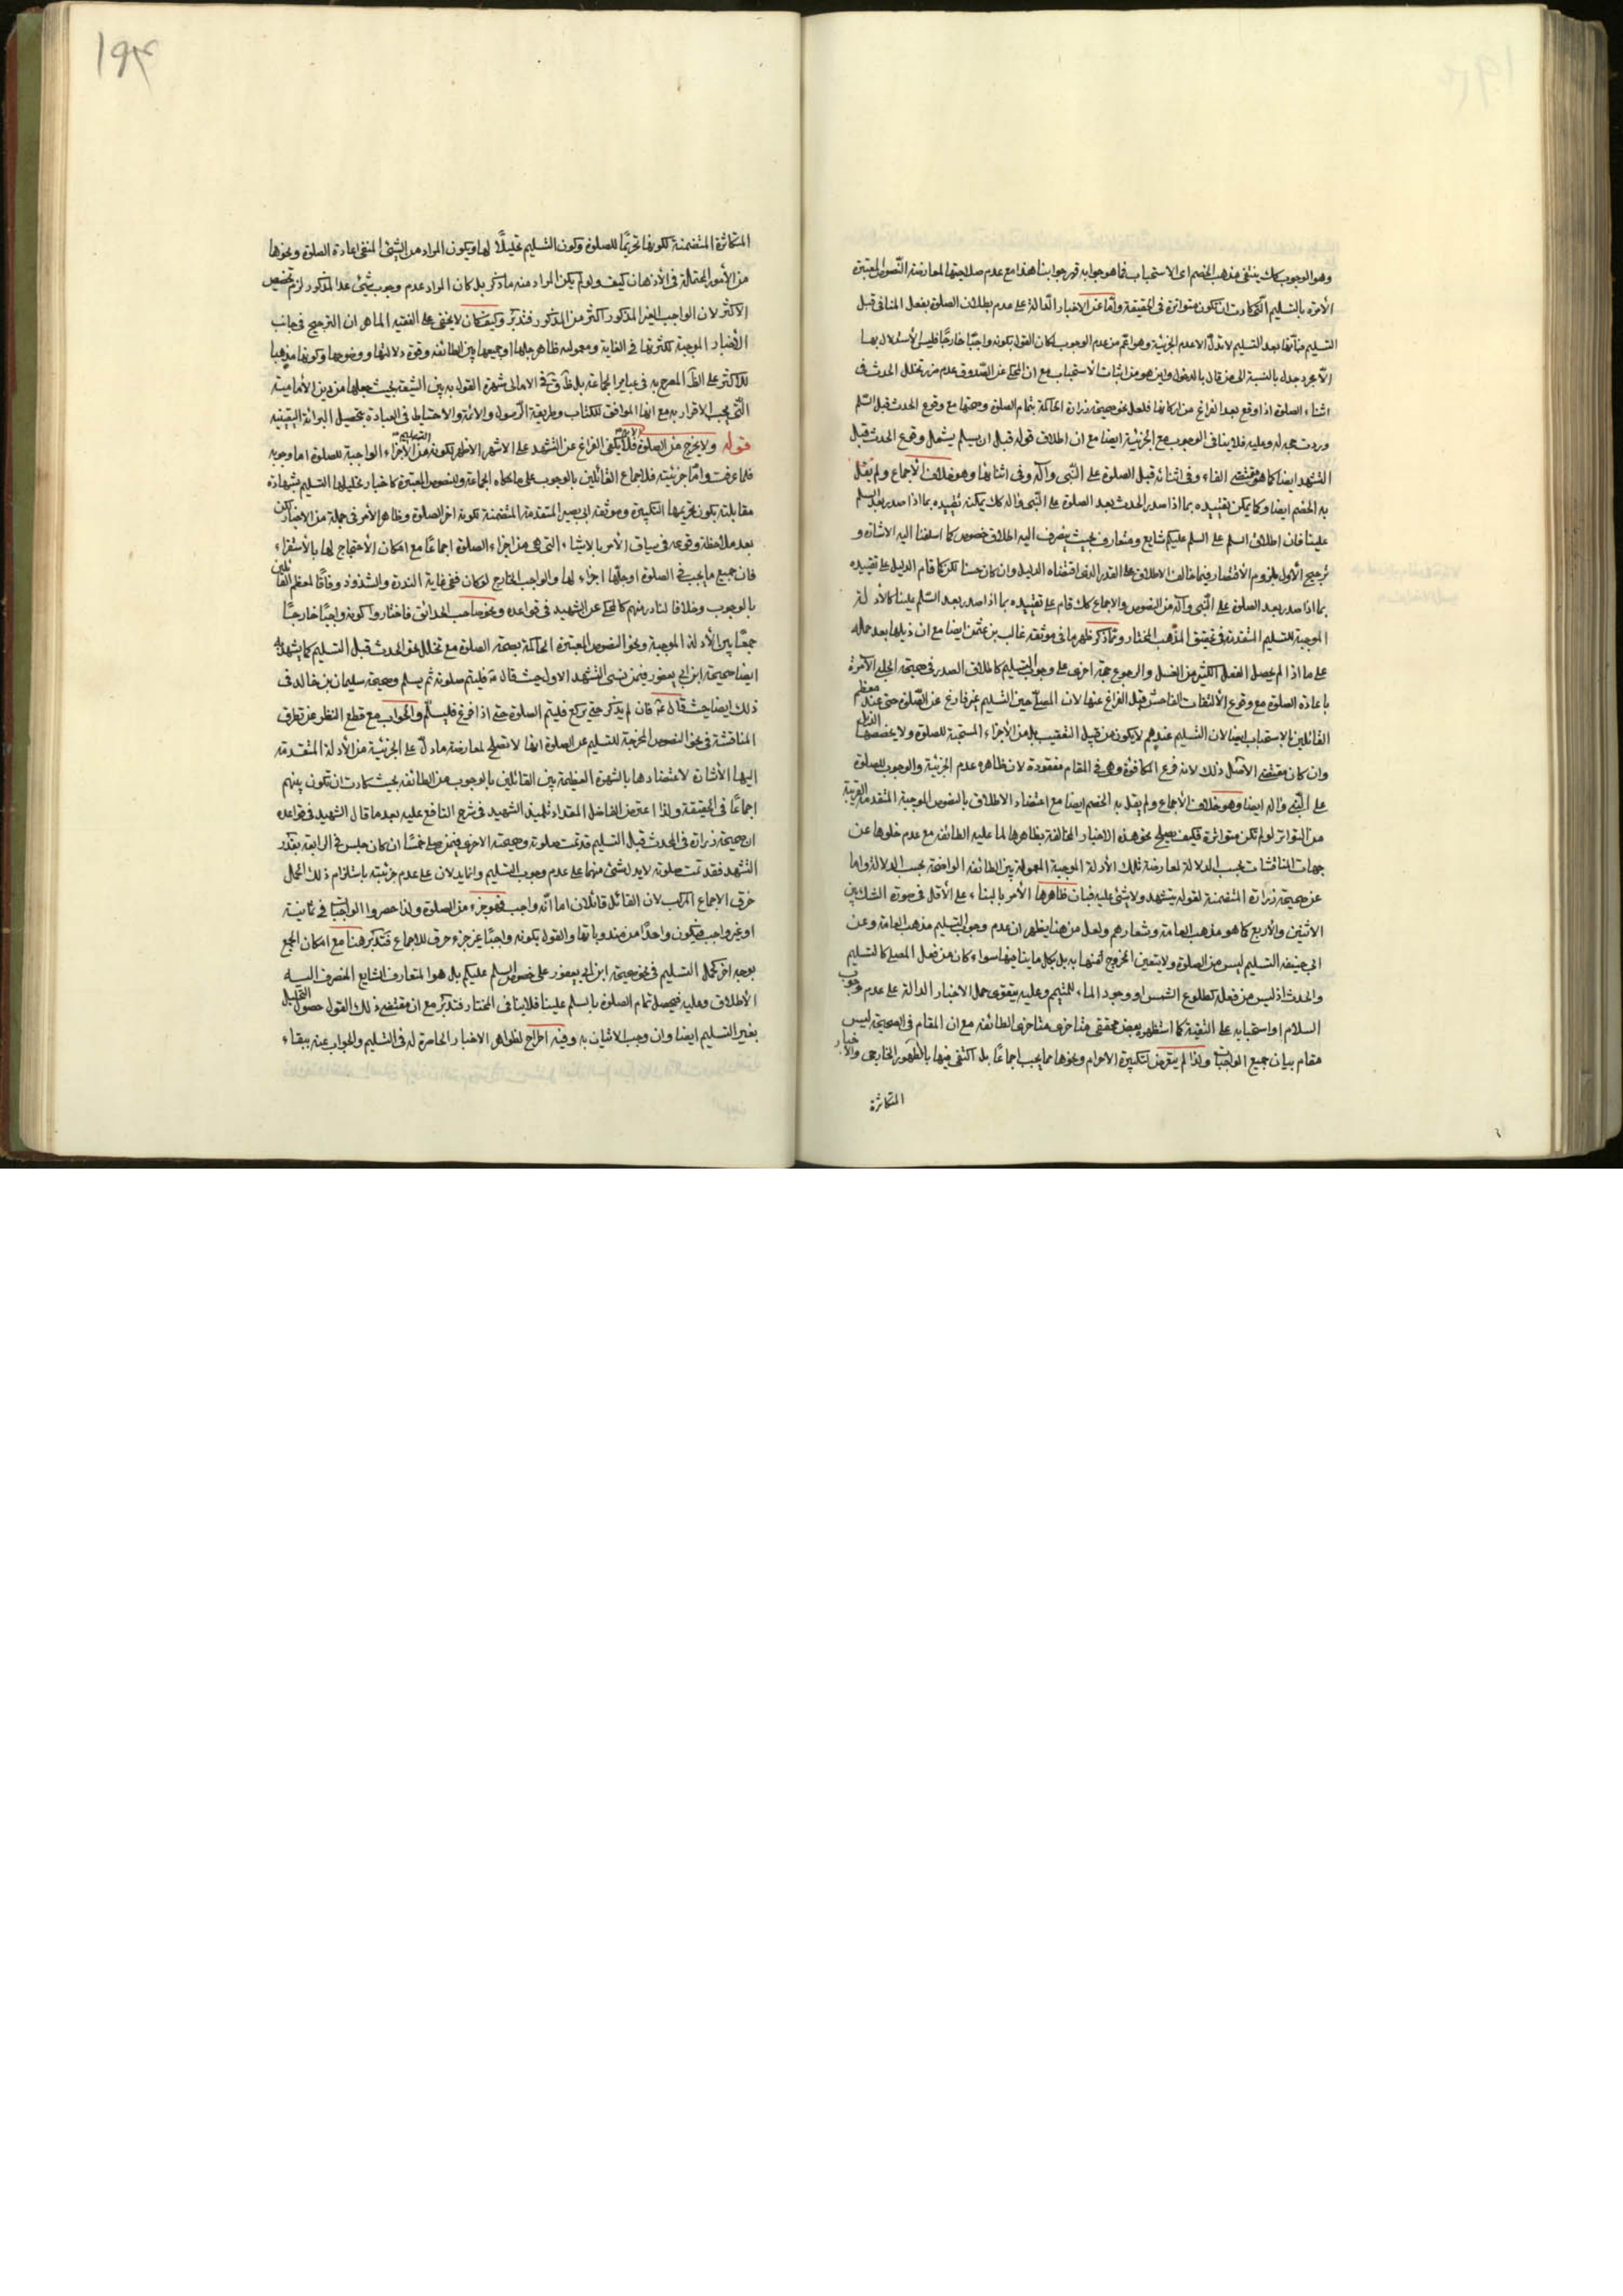 وهو الوجوب كك ينفى مذهب الخصم اى الاستحباب فما هو جوابه فهو جوابنا هذا مع عدم صلاحيتها لمعارضة النصوص المعتبرة
الآمرة بالتسليم التى كادت ان تكون متواترة فى الحقيقة واما عن الاخبار الدالة على عدم بطلان الصلوة بفعل المنافى قبل
التسليم فبأنها بعد التسليم لا تدل الا عدم الجزئية وهو اعم من عدم الوجوب لمكان القول بكونه واجبا خارجا فليس الاستدلال بها
الا مجرد جدل بالنسبة الى من قال بالدخول واين هو من اثبات الاستحباب مع ان المحكى عن الصدوق عدم ضرر تخلل الحدث فى
اثناء الصلوة اذا وقع بعد الفراغ من اركانها فلعل نحو صحيحة زرارة الحاكمة بتمام الصلوة وصحتها مع وقوع الحدث قبل السلم
وردت عليه فلا ينافى الوجوب مع الجزئية ايضا مع ان اطلاق قوله قبل ان يسلم يشمل وقوع الحدث قبل
التشهد ايضا كما هو مقتضى الفاء وفى اثنائه قبل الصلوة على النبى وآله وفى اثنائها وهو خلاف الاجماع ولم يقل
به الخصم ايضا وكما يمكن تقييده بما اذا صدر الحدث بعد الصلوة على النبى وآله كك يمكن تقييده بما اذا صدر بعد السلم
علينا فان اطلاق السلم على السلم عليكم شايع ومتعارف بحيث ينصرف اليه اطلاق خصوص كما اسلفنا اليه الاشارة و
ترجيح الاول بلزوم الاقتصار فيما خالف الاطلاق على القدر الذى اقتضاه الدليل وان كان حسنا لكن كما قام الدليل على تقييده
بما اذا صدر بعد الصلوة على النبى وآله من النصوص والاجماع كك قام على تقييده بما اذا صدر بعد السلم علينا كالادلة
الموجبة للتسليم المتقدمة فى تحقيق المذهب المختار ومما ذكر ظهر ما فى موثقة غالب بن عثمن ايضا مع ان ذيلها بعد حمله
على ما اذا لم يحصل الفعل الكثير من الغسل والرجوع حجة اخرى على وجوب التسليم كاطلاق الصدر فى صحيحة الحلبى الآمرة
باعادة الصلوة مع وقوع الالتفات الفاحش قبل الفراغ عنها لان المصلى حين التسليم غير فارغ عن الصلوة حتى عند معظم
القائلين بالاستحباب ايضا لان التسليم عندهم لا يكون من قبيل التعقيب بل من الاجزاء المستحبة للصلوة ولا يخصصها
وان كان مقتضى الاصل ذلك لانه فرع المكافؤة وهى فى المقام مفقودة لان ظاهره عدم الجزئية والوجوب للصلوة
على النبى وآله ايضا وهو خلاف الاجماع ولم يقل به الخصم ايضا مع اعتضاد الاطلاق بالنصوص الموجبة المتقدمة القريبة
من التواتر لو لم تكن متواترة فكيف يصلح نحو هذه الاخبار المخالفة بظاهرها لما عليه الطائفة مع عدم خلوها عن
جهات المناقشات بحسب الدلالة لمعارضة تلك الأدلة الموجبة المعمولة بين الطائفة الواضحة بحسب الدلالة واما
عن صحيحة زرارة المتضمنة لقوله يتشهد ولا شئ عليه فبان ظاهرها الأمر بالبناء على الاقل فى صورة الشك بين
الاثنين والاربع كما هو مذهب العامة وشعارهم ولعل من هنا يظهر ان عدم وجوب التسليم مذهب العامة وعن
ابى حنيفة التسليم ليس من الصلوة ولا يتعين الخروج منها به بل بكل ما ينافيها سواء كان من فعل المصلى كالتسليم
والحدث اذ ليس من فعله كطلوع الشمس او وجود الماء للمتيمم وعليه يتقوى حمل الاخبار الدالة على عدم وجوب
السلام او استحبابه على التقية كما استظهره بعض محققى متاخرى الطائفة مع ان المقام فى الصحيحة ليس
مقام بيان جميع الواجبات ولذا لم يتعرض لتكبيرة الاحرام ونحوها مما يجب اجماعا بل اكتفى فيها بالظهور الخارجى والاخبار
المتكاثرة
١٩٣
المتكاثرة المتضمنة لكونها تحريما للصلوة وكون التسليم تحليلا لها ويكون المراد من الشئ المنفى اعادة الصلوة ونحوها
من الأمور المحتملة فى الأذهان كيف ولو لم يكن المراد منه ما ذكر بل كان المراد عدم وجوب شئ عدا المذكور لزم تخصيص
الاكثر لان الواجب الغير المذكور اكثر من المذكور فتدبر وكيف كان لا يخفى على الفقيه الماهر ان الترجيح فى جانب
الأخبار الموجبة لكثرتها فى الغاية ومعمولية ظاهر جلها او جميعها بين الطائفة وقوة دلالتها ووضوحها وكونها مذهبا
للاكثر على الظ المصرح به فى عباير الجماعة بل فى الامالى شهرة القول به بين الشيعة بحيث جعلها من دين الأمامية
التى يجب الاقرار به مع انها الموافق للكتاب وطريقة الرسول والائمة والاحتياط فى العبادة بتحصيل البرائة اليقينية
قوله ولا يخرج من الصلوة فلا يكفى الفراغ عن التشهد على الاشهر الاظهر لكونه من الأجزاء الواجبة للصلوة اما وجوبه
فلما عرفت واما جزئيته فلاجماع القائلين بالوجوب على ما حكاه الجماعة وللنصوص المعتبرة كاخبار تحليلها التسليم بشهادة
مقابلته بكون تحريمها التكبيرة وموثقة ابى بصير المتقدمة المتضمنة لكونه اخر الصلوة وظاهر الأمر فى جملة من الاخبار
بعد ملاحظة وقوعه فى سياق الأمر بالاشياء التى هى من اجزاء الصلوة اجماعا مع امكان الأحتجاج لها بالأستقراء
فان جميع ما يجب فى الصلوة اوجلها اجزاء لها والواجب الخارج لو كان ففى غاية الندرة والشذوذ وفاقا لمعظم القائلين
بالوجوب وخلافا لنادر منهم كالمحكى عن الشهيد فى قواعده ونحو صاحب الحدائق فاختاروا كونه واجبا خارجيا
جمعا بين الأدلة الموجبة ونحو النصوص المعتبرة الحاكمة بصحة الصلوة مع تخلل نحو الحدث قبل التسليم كما يشهد له
ايضا صحيحة ابن ابى يعفور فيمن نسى التشهد الاول حيث قال فليتم صلوته ثم يسلم وصحيحة سليمان بن خالد فى
ذلك ايضا حيث قال فان لم يذكر حتى يركع فليتم الصلوة حتى اذا فرغ فليسلم والجواب مع قطع النظر عن تطرق
المناقشة فى نحو النصوص المخرجة للتسليم عن الصلوة انها لا تصلح لمعارضة ما دل على الجزئية من الأدلة المتقدمة
اليها الأشارة لاعتضادها بالشهرة العظيمة بين القائلين بالوجوب بحيث كادت ان تكون بينهم
اجماعا فى الحقيقة ولذا اعترض الفاضل المقداد تلميذ الشهيد فى شرح النافع عليه بعد ما قال الشهيد فى قواعده
ان صحيحة زرارة فى الحدث قبل التسليم قد تمت صلوته وصحيحته الاخرى فيمن صلى خمسا ان كان جلس فى الرابعة بقدر
التشهد فقد تمت صلوته لا يدل شئ منهما على عدم وجوب التسليم وانما يدلان على عدم جزئيته باستلزام ذلك الحمل
خرق الاجماع المركب لان القائل قائلان اما انه واجب فهو جزء من الصلوة ولذا حصروا الواجبات فى ثمانية
او غير واجب فيكون واحدا من مندوباتها والقول بكونه واجبا غير جزء خرق للاجماع فتدبر هنا مع امكان الجمع
بوجه اخر كحمل التسليم فى نحو صحيحة ابن ابى يعفور على خصوص السلم عليكم بل هو المتعارف الشايع المنصرف اليه
الأطلاق وعليه فيحصل تمام الصلوة بالسلم علينا فلا ينافى المختار فتدبر مع ان مقتضى ذلك القول حصول التحليل
بغير التسليم ايضا وان وجب الاتيان به وفيه اخراج لظواهر الاخبار الحاصرة له فى التسليم والجواب عنه ببقاء